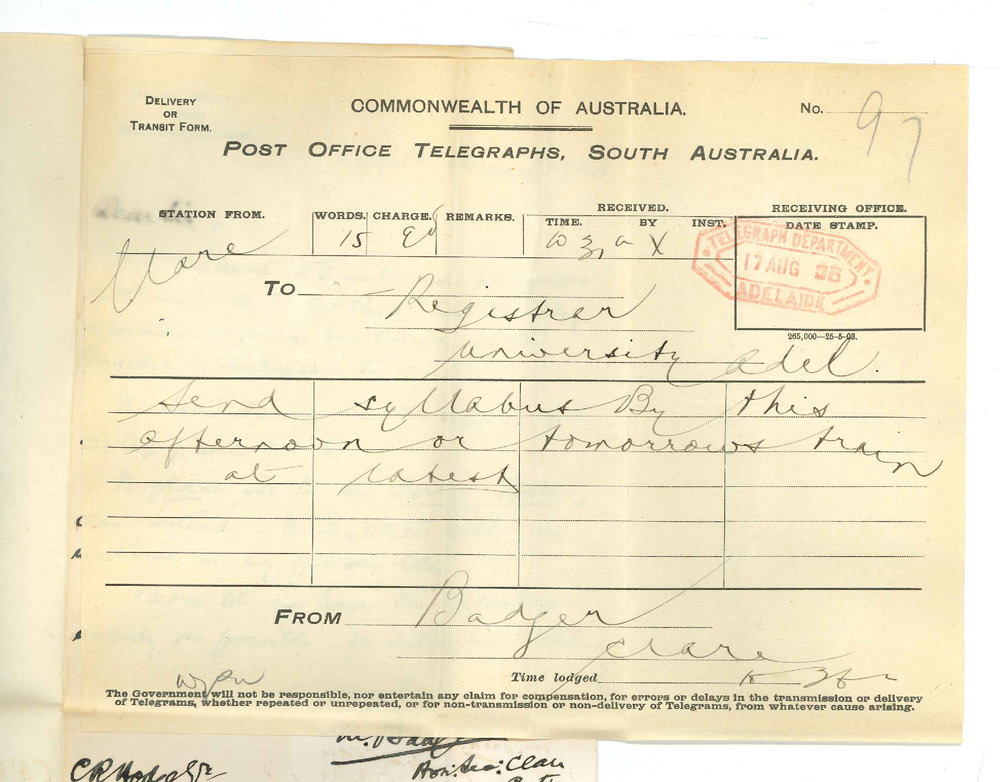 DELIVERY
OR
TRANSIT FORM.
COMMONWEALTH OF AUSTRALIA.
No. 97
POST OFFICE TELEGRAPHS, SOUTH AUSTRALIA.
STATION FROM.
WORDS.
CHARGE.
REMARKS.
RECEIVED.
TIME. BY INST.
RECEIVING OFFICE.
DATE STAMP.
Clare
15
9d
TELEGRAPH DEPARTMENT
17 AUG
ADELAIDE
TO Registrar
265,000—25-5-03.
University Adel.
Send syllabus By this
afternoon or tomorrows train
at latest
FROM Badger
Clare
Time lodged
The Government will not be responsible, nor entertain any claim for compensation, for errors or delays in the transmission or delivery
of Telegrams, whether repeated or unrepeated, or for non-transmission or non-delivery of Telegrams, from whatever cause arising.
Hon: Sec: Clare